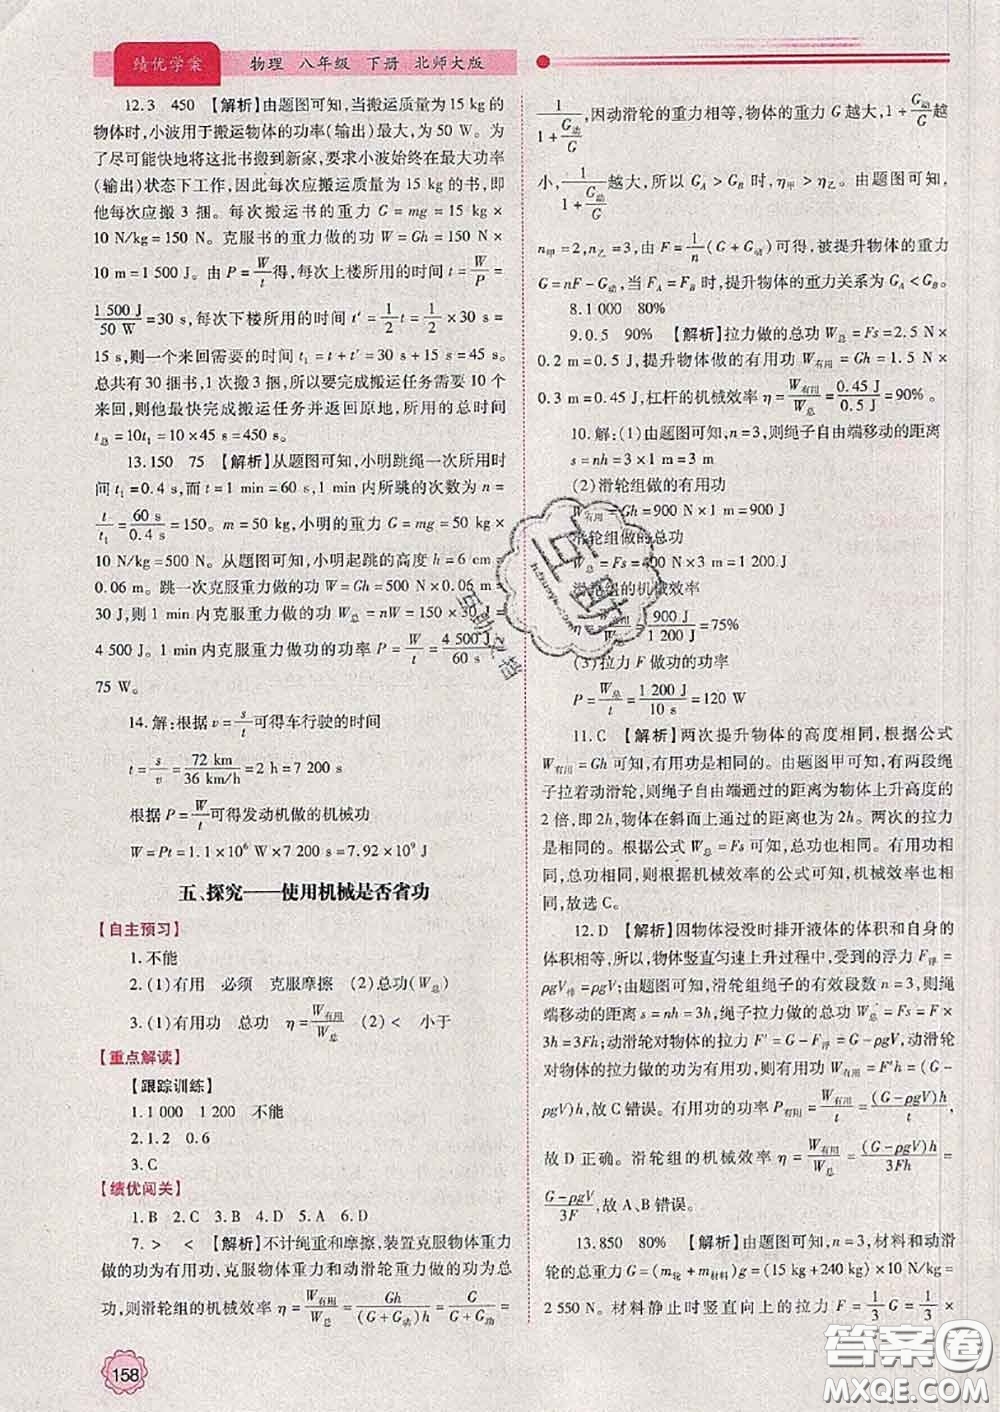 绩优学案
物理 八年级 下册 北师大版
12.3 450 【解析】由题图可知,当搬运质量为 15 kg 的
物体时,小波用于搬运物体的功率(输出)最大,为 50 W。为
了尽可能快地将这批书搬到新家,要求小波始终在最大功率
(输出)状态下工作,因此每次应搬运质量为 15 kg 的书,即
他每次应搬 3 捆。每次搬运书的重力 G = mg = 15 kg
× 10 N/kg = 150 N。克服书的重力做的功 W = Gh = 150 N ×
10 m = 1 500 J。由 P = W/t 得,每次上楼所用的时间 t = W/P =
1 500 J/50 W = 30 s,每次下楼所用的时间 t′ = 1/2 t = 1/2 × 30 s =
15 s,则一个来回需要的时间 t₁ = t + t′ = 30 s + 15 s = 45 s。
总共有 30 捆书,1 次搬 3 捆,所以要完成搬运任务需要 10 个
来回,则他最快完成搬运任务并返回原地,所用的总时间
t总 = 10t₁ = 10 × 45 s = 450 s。
13.150 75 【解析】从题图可知,小明跳绳一次所用时
间 t₁ = 0.4 s,而 t = 1 min = 60 s,1 min 内所跳的次数为 n =
t/t₁ = 60 s/0.4 s = 150。m = 50 kg,小明的重力 G = mg = 50 kg ×
10 N/kg = 500 N。从题图可知,小明起跳的高度 h = 6 cm =
0.06 m。跳一次克服重力做的功 W = Gh = 500 N × 0.06 m =
30 J,则 1 min 内克服重力做的功 W总 = nW = 150 × 30 J =
4 500 J。1 min 内克服重力做功的功率 P = W/t = 4 500 J/60 s =
75 W。
14.解:根据 v = s/t 可得车行驶的时间
t = s/v = 72 km/36 km/h = 2 h = 7 200 s
根据 P = W/t 可得发动机做的机械功
W = Pt = 1.1 × 10⁶ W × 7 200 s = 7.92 × 10⁹ J
五、探究——使用机械是否省功
【自主预习】
1.不能
2.(1)有用 必须 克服摩擦 (2)总功(W总)
3.(1)有用功 总功 η = W有用/W总 (2)< 小于
【重点解读】
【跟踪训练】
1.1 000 1 200 不能
2.1.2 0.6
3.C
【绩优闯关】
1.B 2.C 3.B 4.D 5.A 6.D
7.> < 【解析】不计绳重和摩擦,装置克服物体重力
做的功为有用功,克服物体重力和动滑轮重力做的功为总
功,则滑轮组的机械效率 η = W有用/W总 = Gh/(G + G动)h = G/G + G动 =
1/1 + G动/G,因动滑轮的重力相等,物体的重力 G 越大,1 + G动/G 越
小,1/1 + G动/G 越大,所以 G_A > G_B 时,η甲 > η乙。由题图可知,
n甲 = 2,n乙 = 3,由 F = 1/n (G + G动)可得,被提升物体的重力
G = nF − G动,当 F_A = F_B 时,提升物体的重力关系为 G_A < G_B。
8.1 000 80%
9.0.5 90% 【解析】拉力做的总功 W总 = Fs = 2.5 N ×
0.2 m = 0.5 J,提升物体做的有用功 W有用 = Gh = 1.5 N ×
0.3 m = 0.45 J,杠杆的机械效率 η = W有用/W总 = 0.45 J/0.5 J = 90%。
10.解:(1)由题图可知,n = 3,则绳子自由端移动的距离
s = nh = 3 × 1 m = 3 m
(2)滑轮组做的有用功
W有用 = Gh = 900 N × 1 m = 900 J
滑轮组做的总功
W总 = Fs = 400 N × 3 m = 1 200 J
滑轮组的机械效率
η = W有用/W总 = 900 J/1 200 J = 75%
(3)拉力 F 做功的功率
P = W总/t = 1 200 J/10 s = 120 W
11.C 【解析】两次提升物体的高度相同,根据公式
W有用 = Gh 可知,有用功是相同的。由题图甲可知,有两段绳
子拉着动滑轮,则绳子自由端通过的距离为物体上升高度的
2 倍,即 2h,物体在斜面上通过的距离也为 2h。两次的拉力
是相同的,根据公式 W总 = Fs 可知,总功也相同。有用功相
同,总功相同,则根据机械效率的公式可知,机械效率相同,
故选 C。
12.D 【解析】因物体浸没时排开液体的体积和自身的
体积相等,所以,物体竖直匀速上升过程中,受到的浮力 F浮 =
ρgV排 = ρgV;由题图可知,滑轮组绳子的有效段数 n = 3,则绳
端移动的距离 s = nh = 3h,绳子拉力做的总功 W总 = Fs = F ×
3h = 3Fh;动滑轮对物体的拉力 F′ = G − F浮 = G − ρgV,动滑轮
对物体的拉力做的功为有用功,则有用功 W有用 = F′h = (G −
ρgV)h,故 C 错误。有用功的功率 P有用 = W有用/t = (G − ρgV)h/t,
故 D 正确。滑轮组的机械效率 η = W有用/W总 = (G − ρgV)h/3Fh
= G − ρgV/3F,故 A、B 错误。
13.850 80% 【解析】由题图可知,n = 3,材料和动滑
轮的总重力 G = (m轮 + m材料)g = (15 kg + 240 kg) × 10 N/kg =
2 550 N。材料静止时竖直向上的拉力 F = 1/3 G = 1/3 ×
158
互助文档
答案圈
MXQE.COM